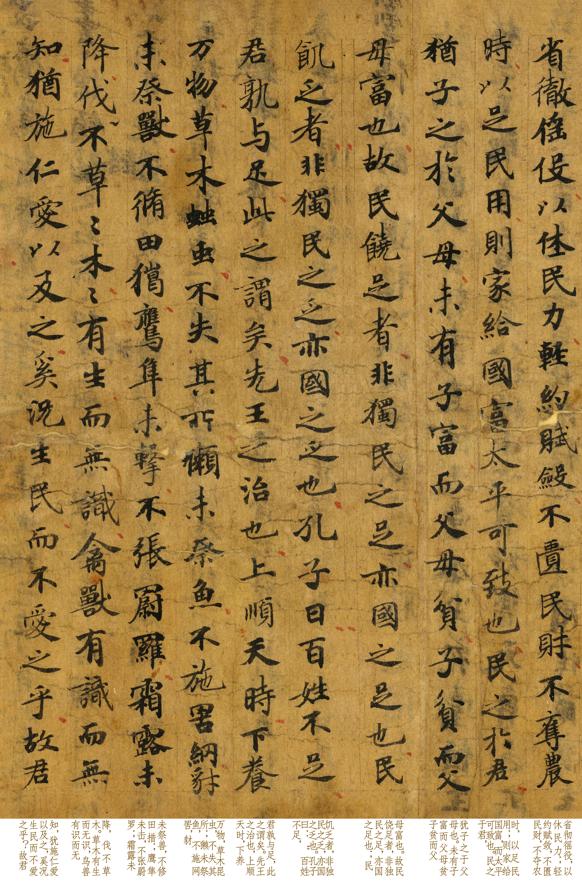 省徹傜伇以休民力輕約賦斂不匱民財不奪農
時以足民用則家給國富太平可致也民之於君
猶子之於父母未有子富而父母貧子貧而父
母富也故民饒足者非獨民之足亦國之足也民
飢乏者非獨民之乏亦國之乏也孔子曰百姓不足
君孰与足此之謂矣先王之治也上順天時下養
万物草木䖵虫不失其所獺未祭魚不施罟納豺
未祭獸不脩田獦鷹隼未擊不張罻羅霜露未
降伐不草〻木〻有生而無識禽獸有識而無
知猶施仁愛以及之奚況生民而不愛之乎故君
省彻徭役，以
休民力；轻
约赋敛，不匮
民财；不夺农
时，以足民
用；则家给
国富，而太平
可致也。民之
于君
犹子之于父
母也。未有子
富而父母贫
子贫而父
母富也。故民
饶足者，非独
民之足，亦国
之足也；民
饥乏者，非独
民之乏，亦国
之乏也。孔子
曰：百姓
不足
君孰与足，此
之谓矣。先王
之治也，上顺
天时，下养
万物，草木昆
虫，失其
所；獭未祭
鱼，不施网
罟；豺
未祭兽，不修
田猎；鹰隼
未击，不张罻
罗；霜露未
降，伐不草
木。草木有生
而无识，鸟兽
有识而无
知，犹施仁爱
以及之，奚况
生民而不爱
之乎？故君